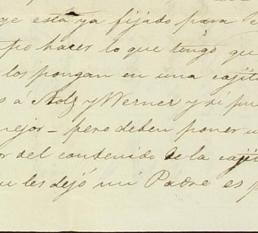 je está ya fijado para
po hacer lo que tengo que
los pongan en una cajita
s á Stolz y Werner y si pue
mejor — pero deben poner u
or del contenido de la cajit
u les dejó mi Padre es p